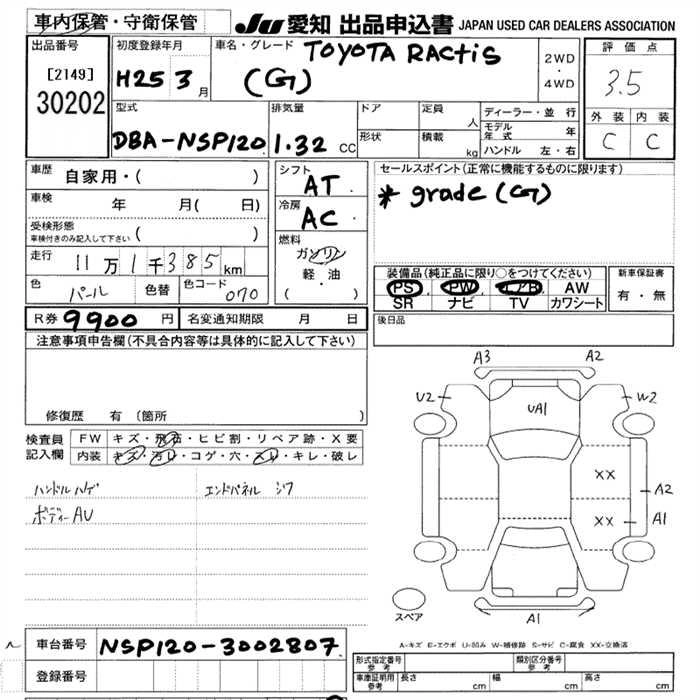 車内保管・守衛保管
JU 愛知 出品申込書 JAPAN USED CAR DEALERS ASSOCIATION
出品番号
[2149]
30202
初度登録年月
H25 3 月
車名・グレード TOYOTA RACTIS
(G)
2WD
・
4WD
評価点
3.5
外装 内装
C C
型式
DBA-NSP120
排気量
1.32 CC
ドア
形状
定員
人
積載
kg
ディーラー・並行
モデル年式 年
ハンドル 左・右
車歴 自家用・( )
車検 年 月( 日)
受検形態
車検付きのみ記入して下さい ( )
走行 11万1千385km
色 パール 色替 色コード 070
シフト
AT
冷房
AC
燃料
ガソリン
軽・油
( )
セールスポイント(正常に機能するものに限ります)
* grade (G)
装備品(純正品に限り○をつけてください)
PS PW エアB AW
SR ナビ TV カワシート
新車保証書
有・無
R券 9900 円 名変通知期限 月 日
後日品
注意事項申告欄(不具合内容等は具体的に記入して下さい)
修復歴 有(箇所 )
検査員
記入欄
FW キズ・飛石・ヒビ割・リペア跡・X要
内装 キズ・汚れ・コゲ・穴・スレ・キレ・破レ
ハンドルハゲ エンドパネル ジワ
ボディーAU
A3 A2
U2 W2
UA1
XX
A2
XX A1
A1
スペア
A-キズ E-エクボ U-凹み W-補修跡 S-サビ C-腐食 XX-交換済
車台番号 NSP120-3002807
登録番号
形式指定番号
参考
類別区分番号
参考
車庫証明用
参考
長さ cm 幅 cm 高さ cm